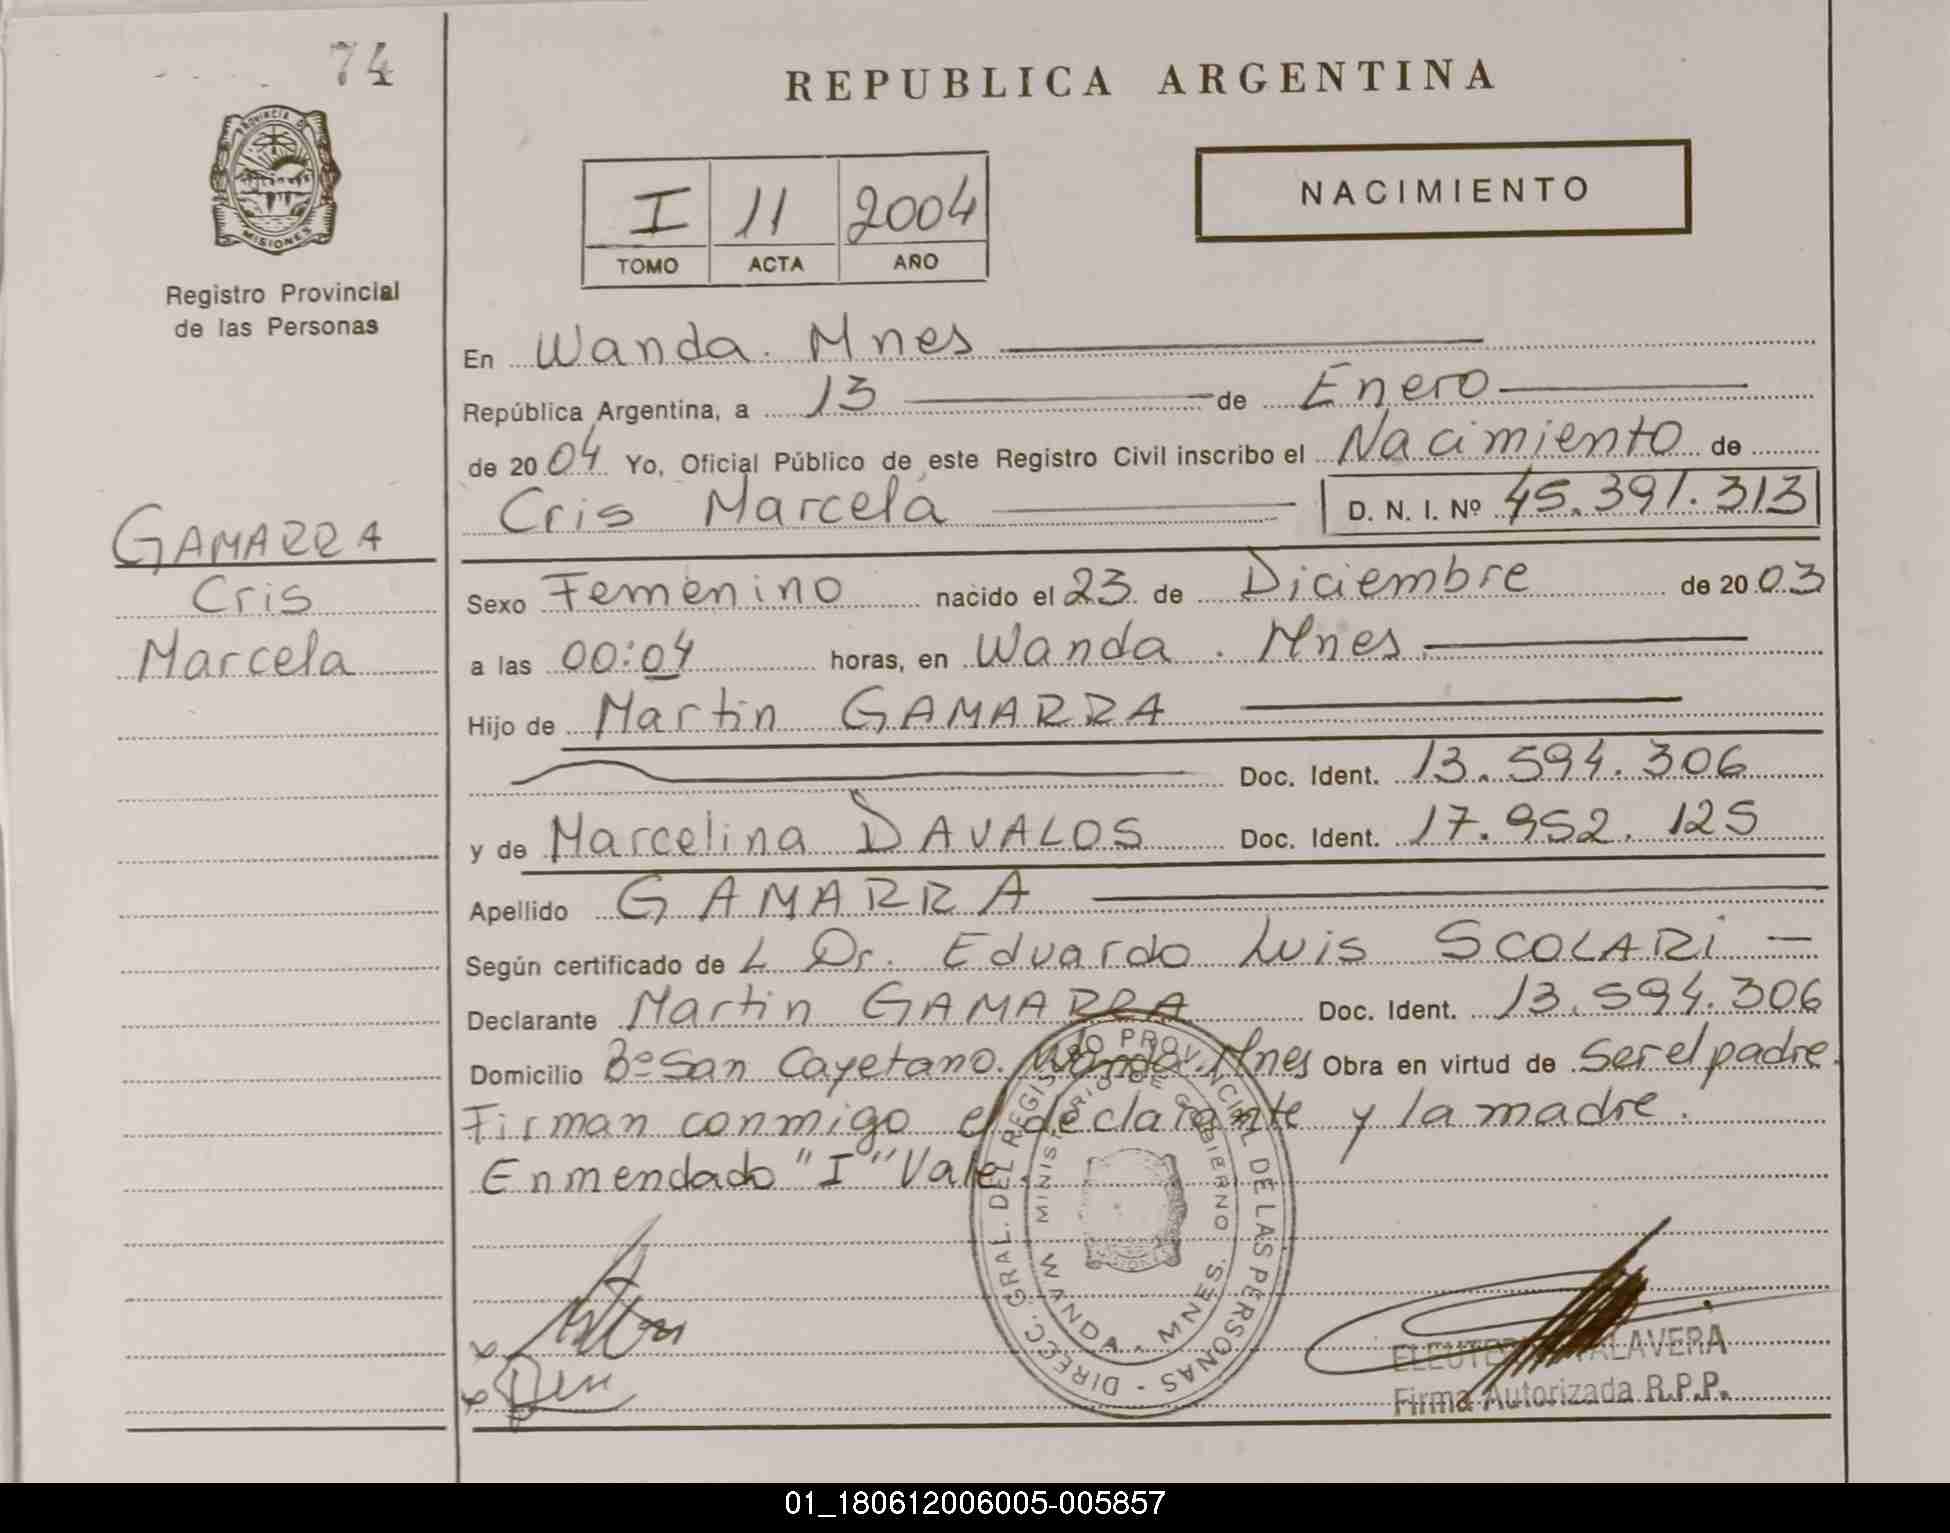 74
REPUBLICA ARGENTINA
PROVINCIA DE
MISIONES
Registro Provincial
de las Personas
I 11 2004
TOMO ACTA AÑO
NACIMIENTO
En Wanda. Mnes
República Argentina, a 13 de Enero
de 2004 Yo, Oficial Público de este Registro Civil inscribo el Nacimiento de
Cris Marcela D. N. I. Nº 45.391.313
GAMARRA
Cris
Marcela
Sexo Femenino nacido el 23 de Diciembre de 2003
a las 00:04 horas, en Wanda. Mnes
Hijo de Martin GAMARRA
Doc. Ident. 13.594.306
y de Marcelina DAVALOS Doc. Ident. 17.952.125
Apellido GAMARRA
Según certificado de L Dr. Eduardo Luis SCOLARI
Declarante Martin GAMARRA Doc. Ident. 13.594.306
Domicilio Bº San Cayetano. Wanda. Mnes Obra en virtud de Ser el padre.
Firman conmigo el declarante y la madre.
Enmendado "I" Vale.
DIRECC. GRAL. DEL REGISTRO PROVINCIAL DE LAS PERSONAS -
MINISTERIO DE GOBIERNO
WANDA - MNES.
TALAVERA
Firma Autorizada R.P.P.
01_180612006005-005857